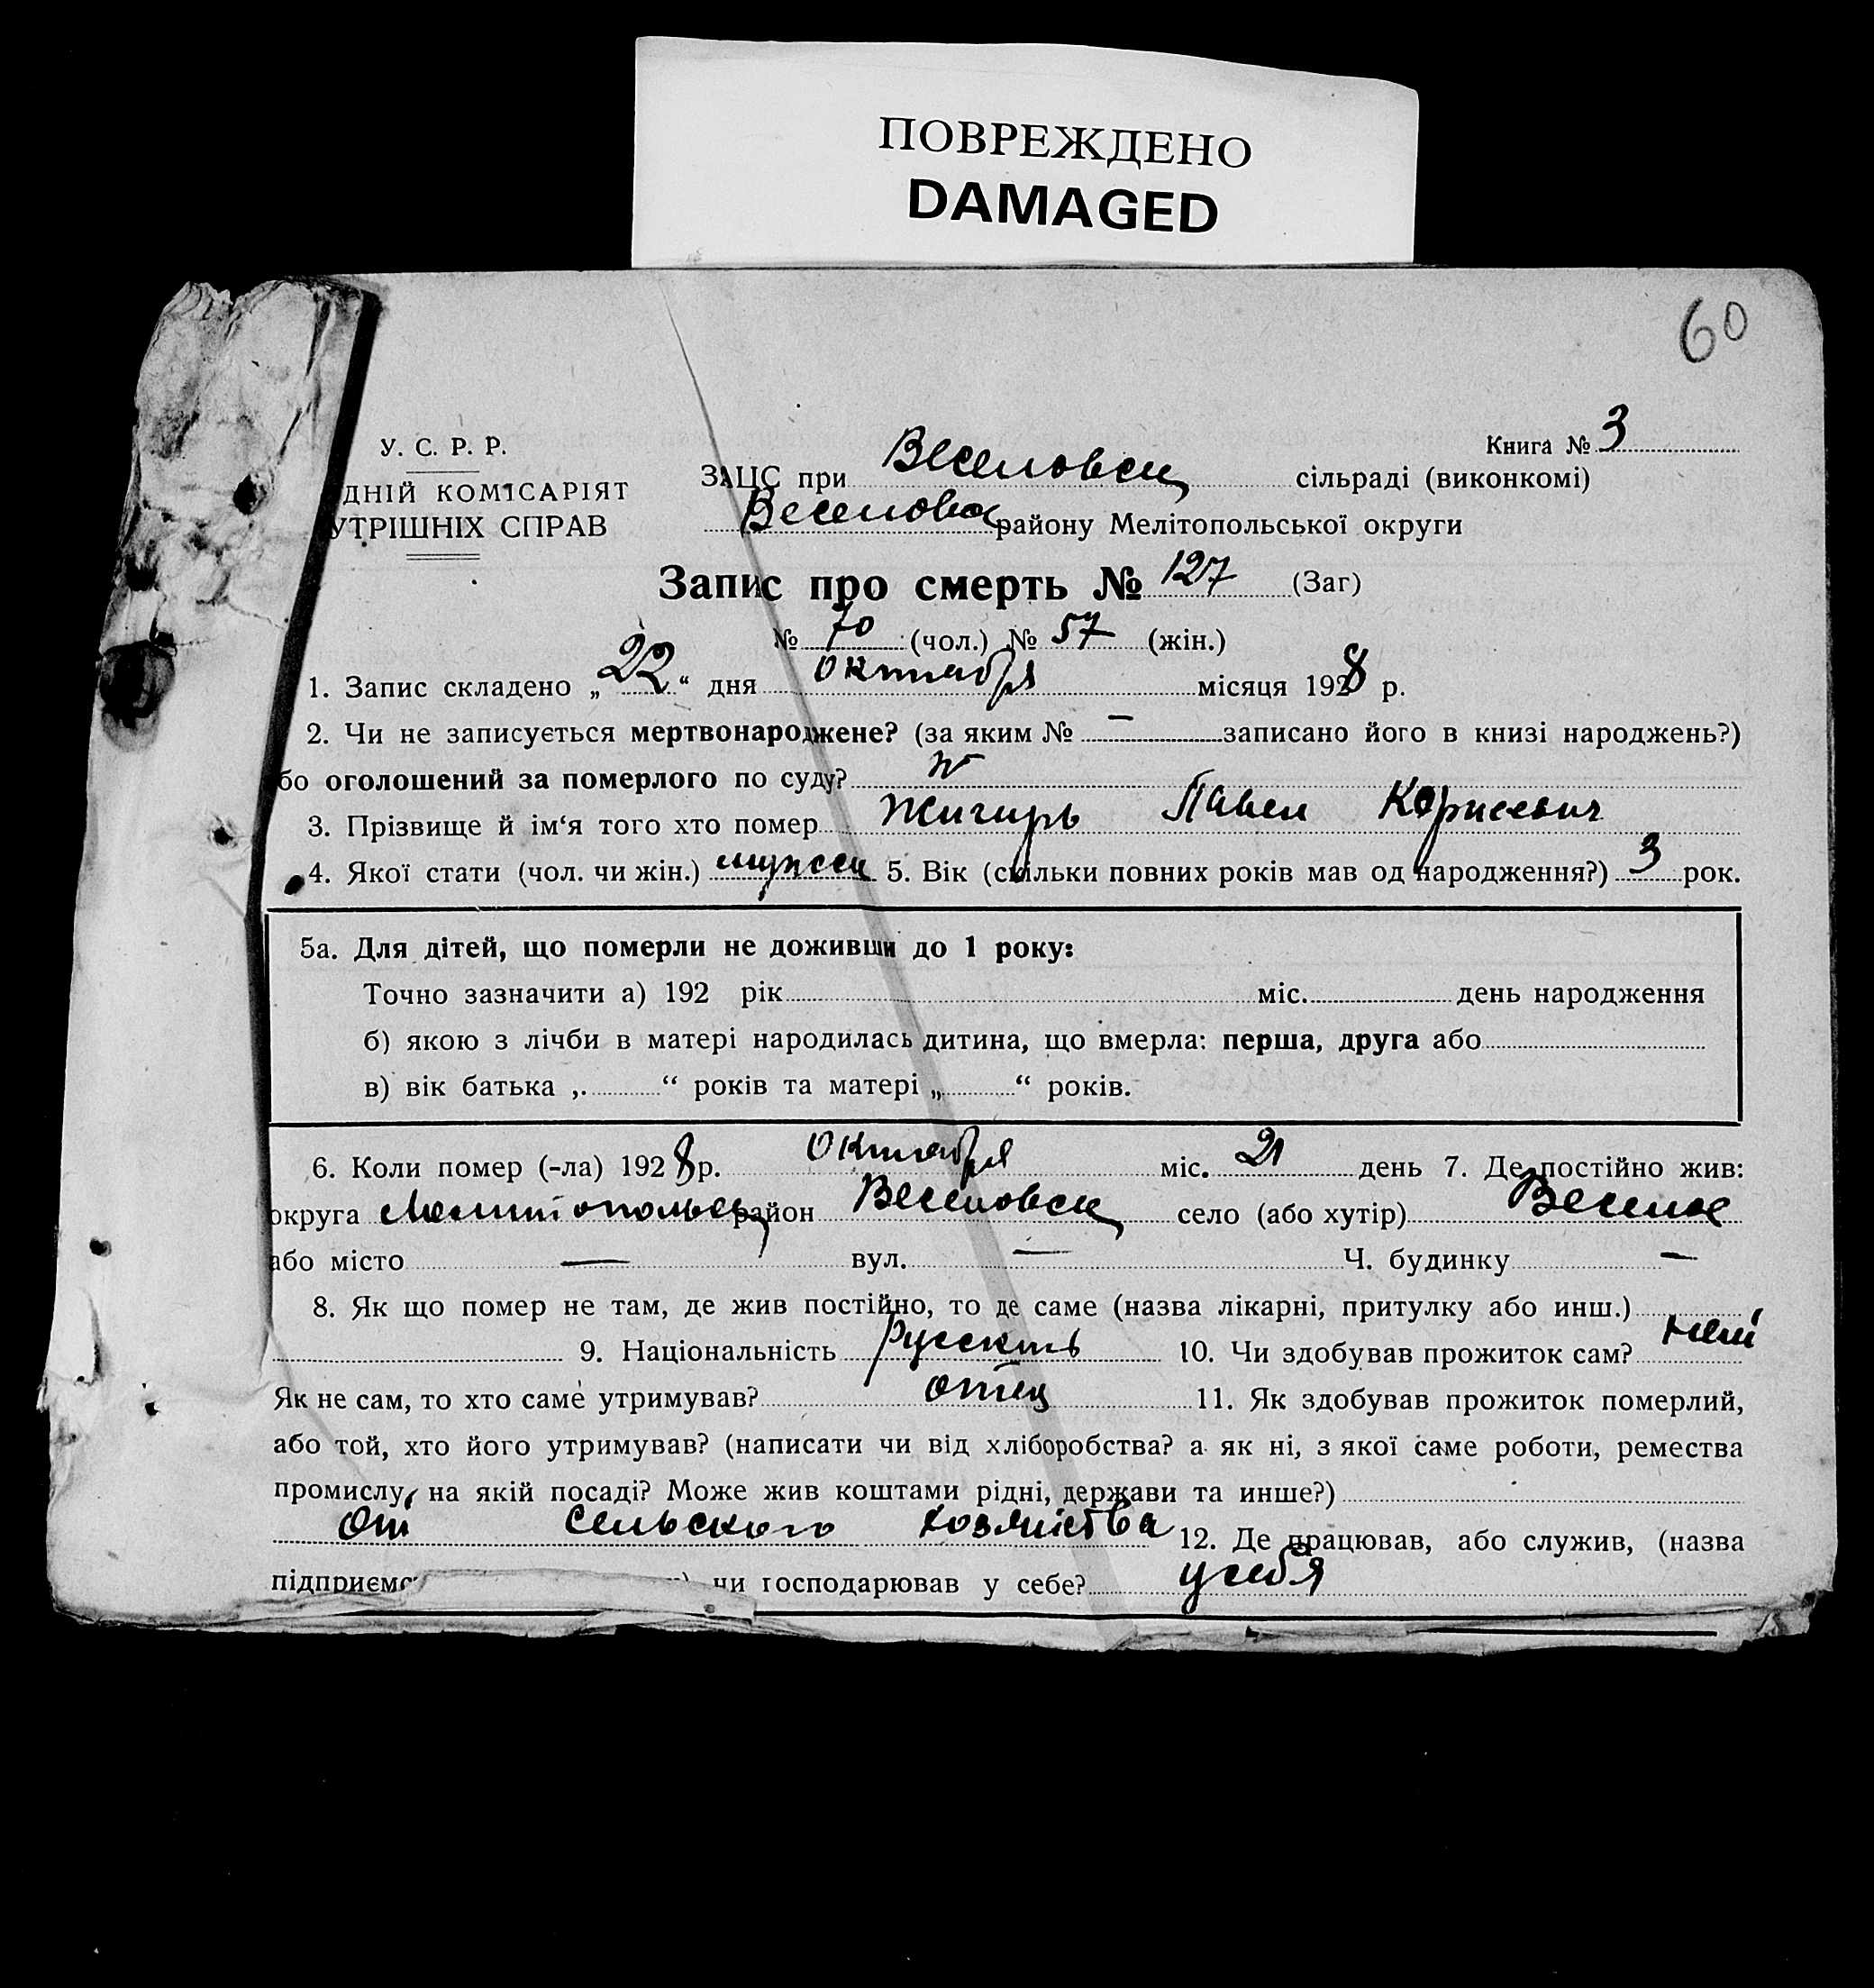 ПОВРЕЖДЕНО
DAMAGED
60
Книга № 3
У. С. Р. Р.
ДНІЙ КОМІСАРІЯТ
УТРІШНІХ СПРАВ
ЗАЦС при Веселовск сільраді (виконкомі)
Веселовск району Мелітопольської округи
Запис про смерть № 127 (Заг)
№ 70 (чол.) № 57 (жін.)
1. Запис складено „22“ дня октября місяця 1928 р.
2. Чи не записується мертвонароджене? (за яким № — записано його в книзі народжень?)
бо оголошений за померлого по суду?
3. Прізвище й ім‘я того хто помер Жигирь Павел
4. Якої стати (чол. чи жін.) мужск 5. Вік (скільки повних років мав од народження?) 3 рок.
5а. Для дітей, що померли не доживши до 1 року:
Точно зазначити а) 192 рік міс. день народження
б) якою з лічби в матері народилась дитина, що вмерла: перша, друга або
в) вік батька „ “ років та матері „ “ років.
6. Коли помер (-ла) 1928 р. октября міс. 21 день 7. Де постійно жив:
округа Мелитопольск район Веселовск село (або хутір) Веселое
або місто — вул. — Ч. будинку —
8. Як що помер не там, де жив постійно, то де саме (назва лікарні, притулку або инш.)
9. Національність 10. Чи здобував прожиток сам? нет
Як не сам, то хто саме утримував? отец 11. Як здобував прожиток померлий,
або той, хто його утримував? (написати чи від хліборобства? а як ні, з якої саме роботи, ремества
промислу, на якій посаді? Може жив коштами рідні, держави та инше?)
От сельского хозяйства 12. Де працював, або служив, (назва
підприємс чи господарював у себе? у себя